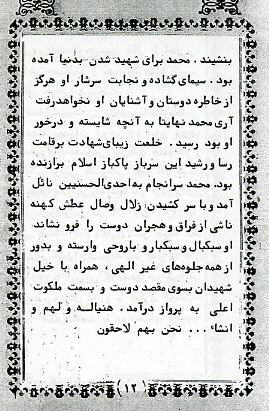 بنشیند . محمد برای شهید شدن بدنیا آمده
بود . سیمای گشاده و نجابت سرشار او هرگز
از خاطره دوستان و آشنایان او نخواهد رفت
آری محمد نهایتا به آنچه شایسته و درخور
او بود رسید . خلعت زیبای شهادت برقامت
رسا و رشید این سرباز پاکباز اسلام برازنده
بود. محمد سرانجام به احدی الحسنیین نائل
آمد و با سر کشیدن زلال وصال عطش کهنه
ناشی از فراق و هجران دوست را فرو نشاند
او سبکبال و سبکبار و باروحی وارسته و بدور
از همه جلوه‌های غیر الهی ، همراه با خیل
شهیدان بسوی مقصد دوست و بسمت ملکوت
اعلی به پرواز درآمد . هنیا له و لهم و
انشاء ... نحن بهم لاحقون
(۱۲)